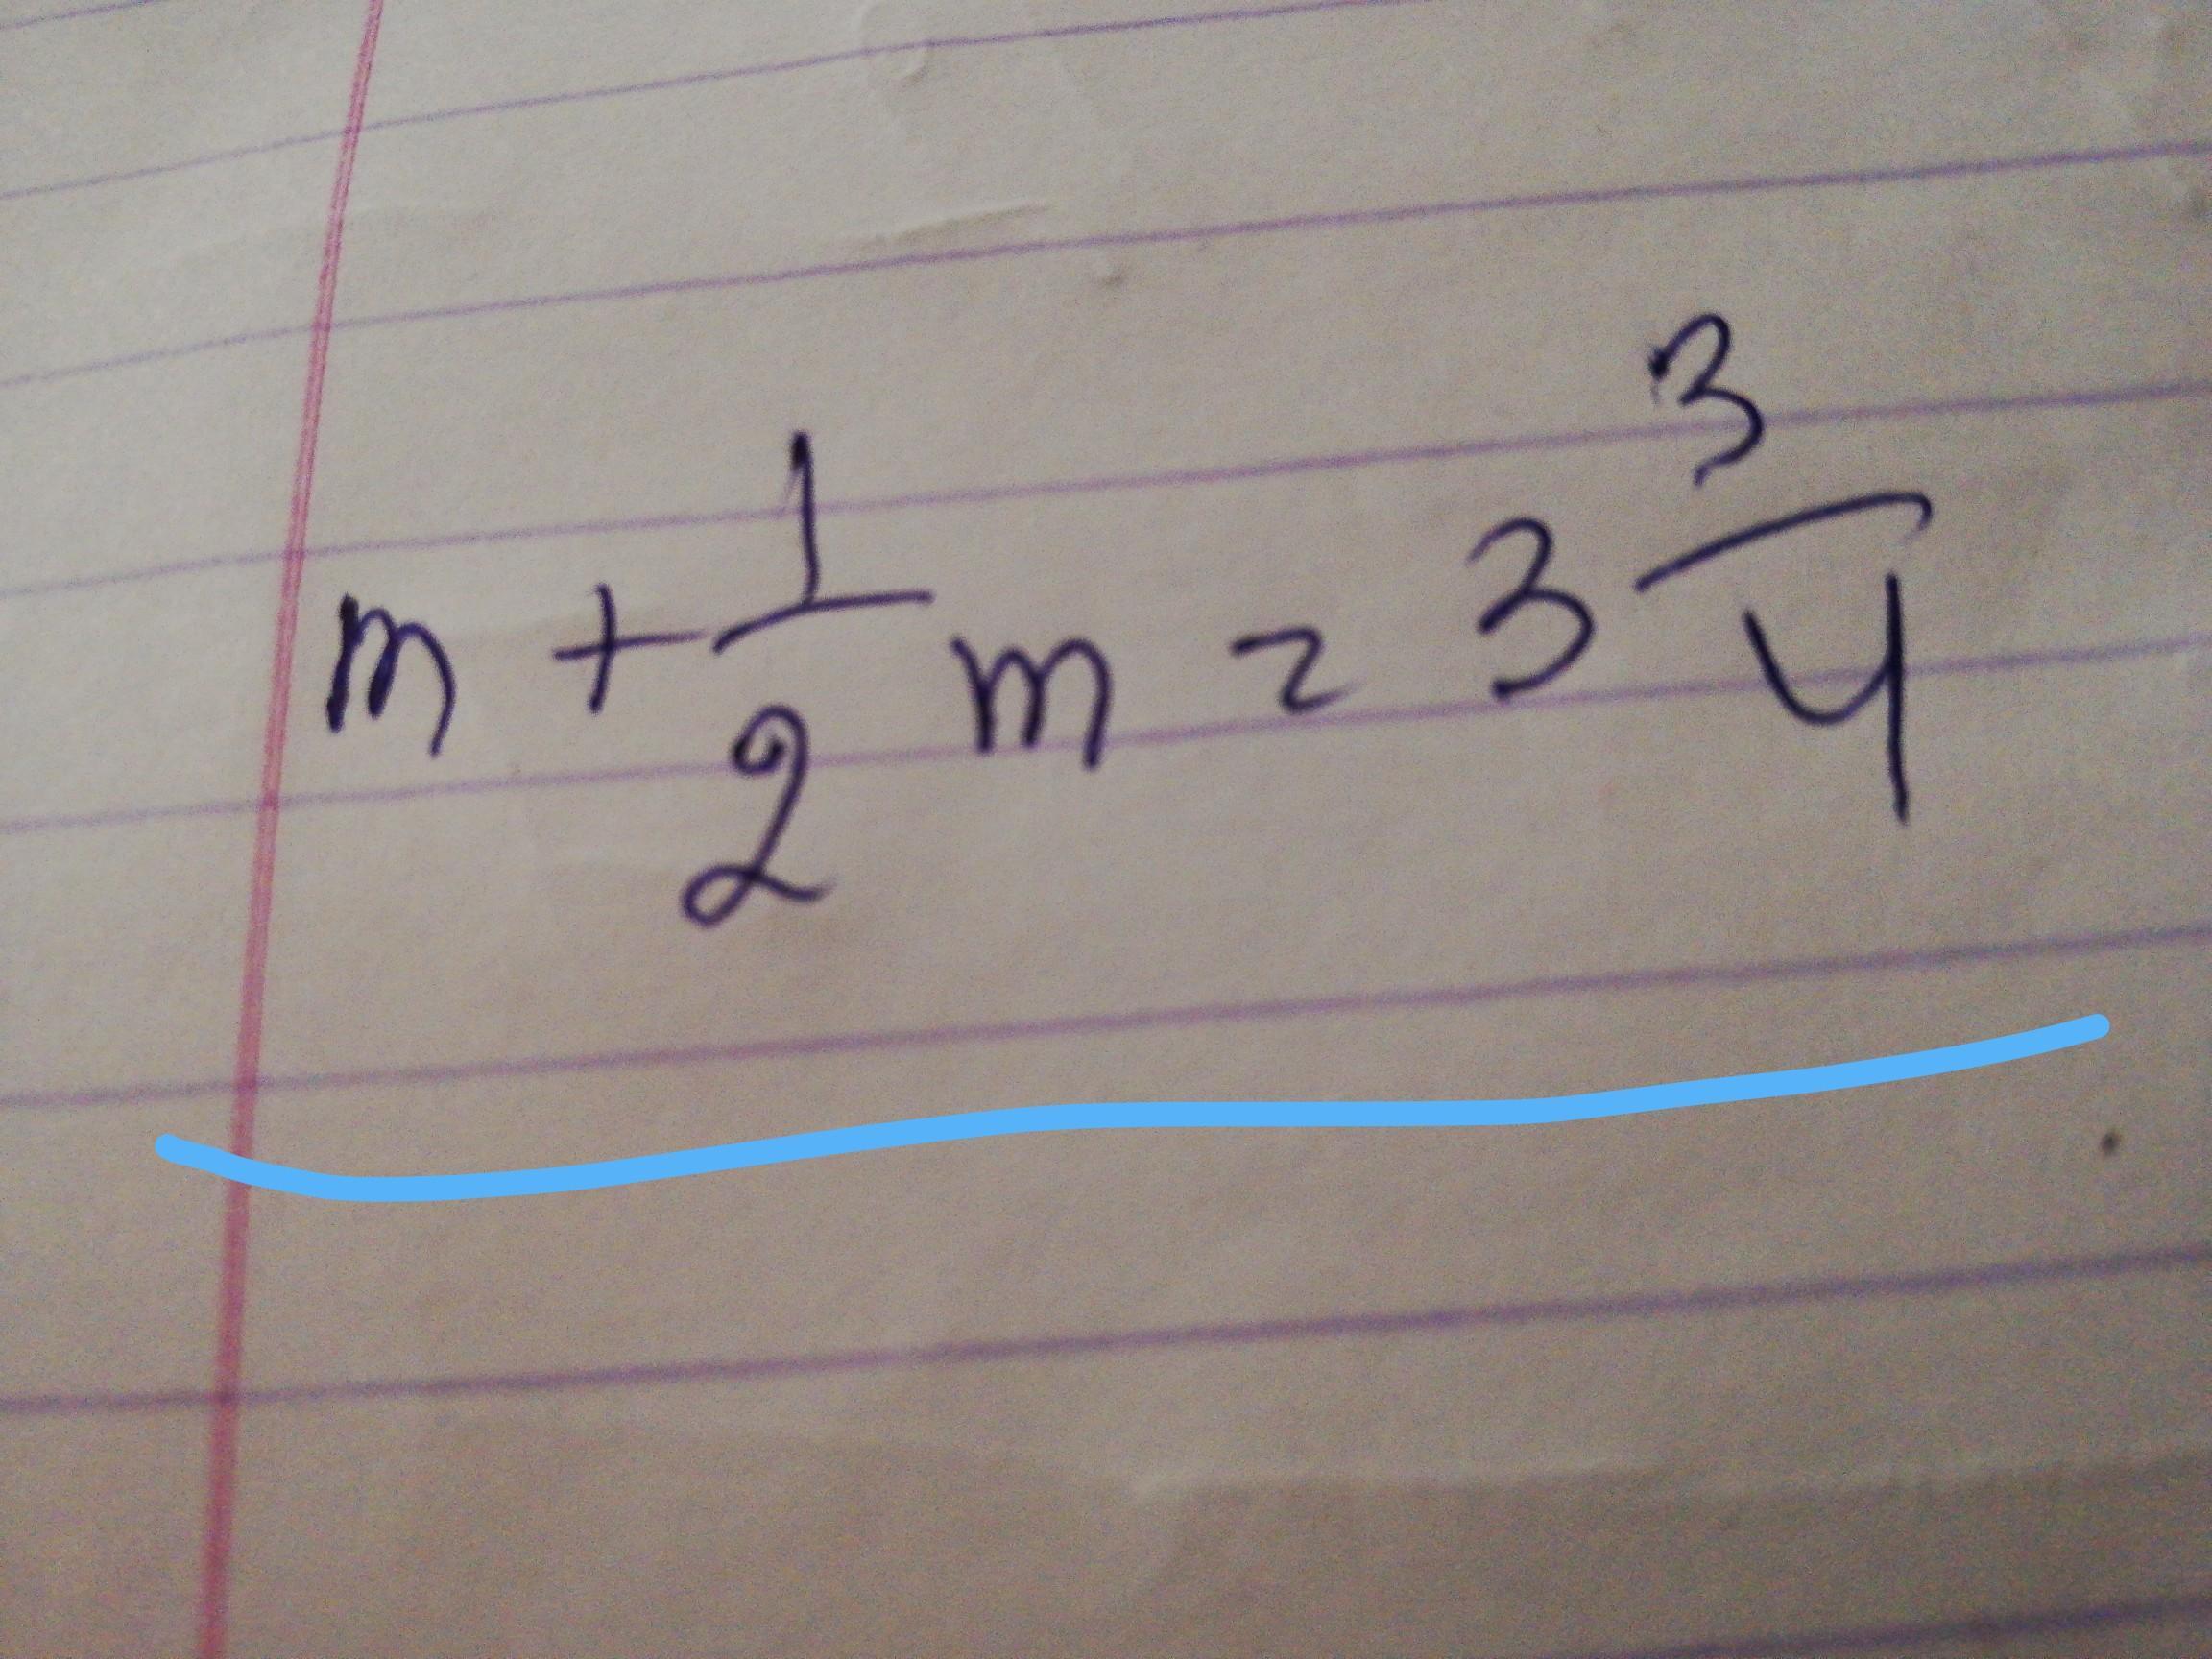 m + 1/2 m = 3 3/4